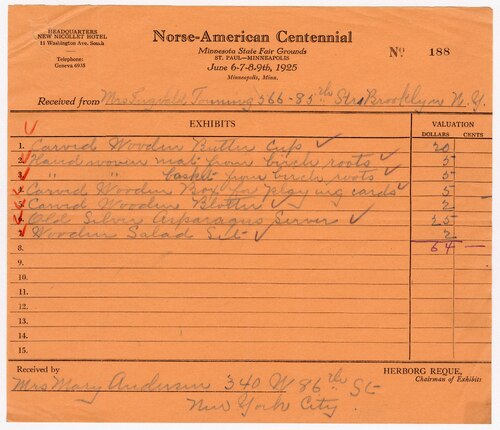 HEADQUARTERS
NEW NICOLLET HOTEL
11 Washington Ave. South
Telephone:
Geneva 6935
Norse-American Centennial
Minnesota State Fair Grounds
ST. PAUL—MINNEAPOLIS
June 6-7-8-9th, 1925
Minneapolis, Minn.
No 188
Received from Mrs Ingvald Tonning 566-85th Str. Brooklyn N.Y.
EXHIBITS VALUATION
DOLLARS CENTS
1. Carved Wooden Butter Cup ✓ 20
2. Hand woven mat from birch roots ✓ 5
3. " " basket from birch roots ✓ 5
4. Carved Wooden Box for playing cards ✓ 5
5. Carved Wooden Blotter ✓ 2
6. Old Silver Asparagus Server ✓ 25
7. Wooden Salad Set ✓ 2
8. 64 —
9.
10.
11.
12.
13.
14.
15.
Received by HERBORG REQUE,
Chairman of Exhibits
Mrs Mary Anderson 340 W 86the St
New York City.